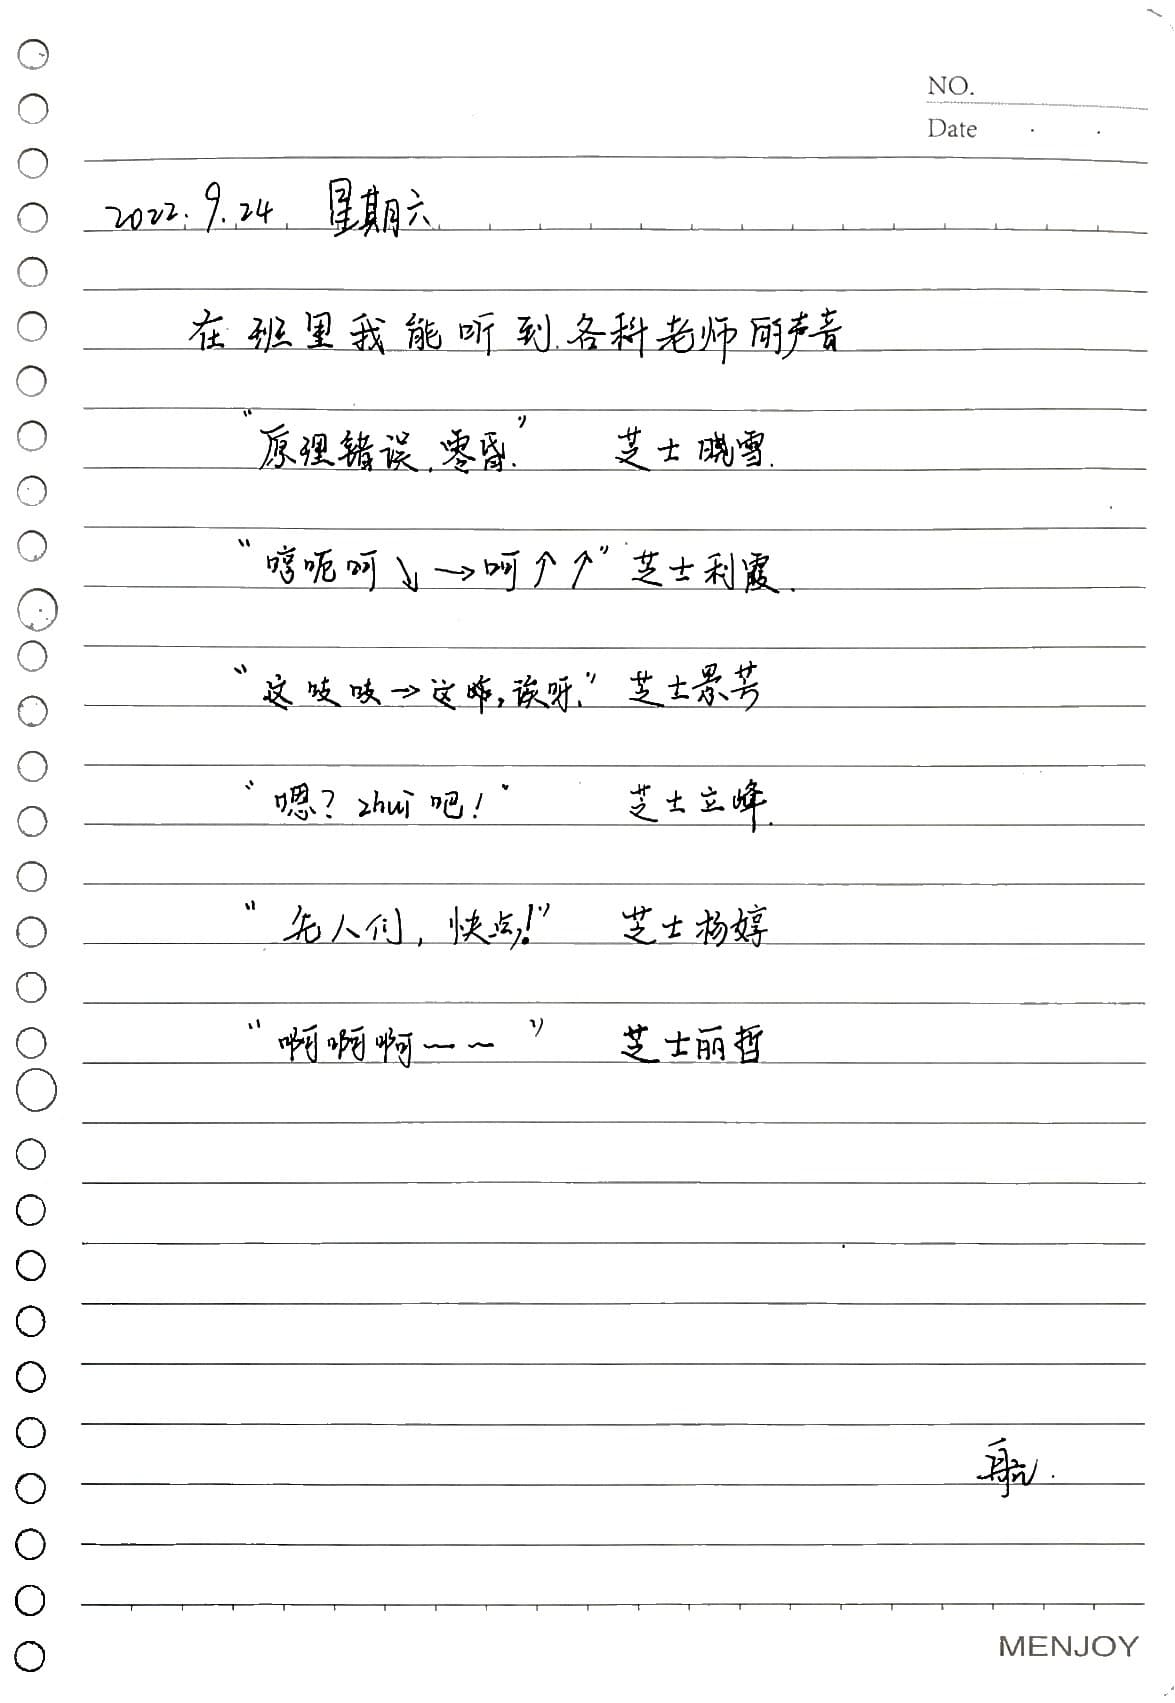 NO.
Date . .
2022.9.24. 星期六
在班里我能听到各科老师的声音
“原理错误,零昏.” 芝士晓雪.
“哼呃呵↘→呵↑↑” 芝士利霞.
“这吱吱→这咋,诶呀.” 芝士景芳
“嗯?zhuī吧!” 芝士立峰.
“人们,快点!” 芝士杨婷
“啊啊啊~~” 芝士丽哲
航.
MENJOY